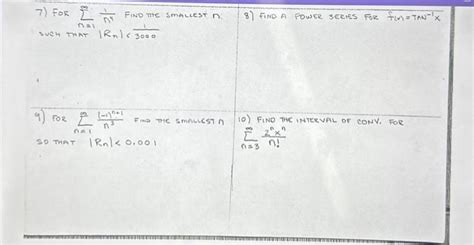 7) FOR ∞ Σ n=1 1/n⁴ FIND THE SMALLEST n
SUCH THAT |Rn| < 1/3000
8) FIND A POWER SERIES FOR f(x)=TAN⁻¹x
9) FOR ∞ Σ n=1 (-1)ⁿ⁺¹/n³ FIND THE SMALLEST n
SO THAT |Rn| < 0.001
10) FIND THE INTERVAL OF CONV. FOR
∞ Σ n=3 2ⁿxⁿ/n!